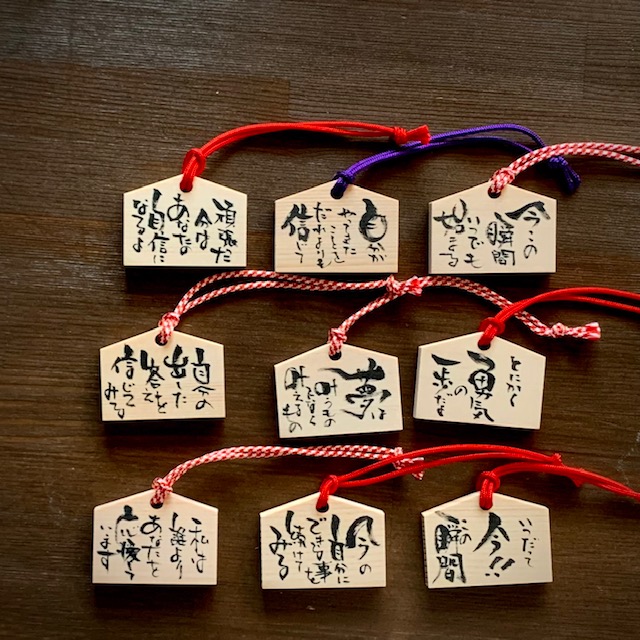 頑張った
今は
あなたの
自信に
なるよ
自分が
やってきた
ことを
だれよりも
信じて
今この
瞬間
いつでも
始まる
自分の
出した
答えを
信じて
みる
夢は
叶うもの
ではなく
叶えるもの
とにかく
勇気
の
一歩だよ
私は
誰より
あなたを
応援して
います
今の
自分に
できる事を
みる
いつだって
今!!
この
瞬間